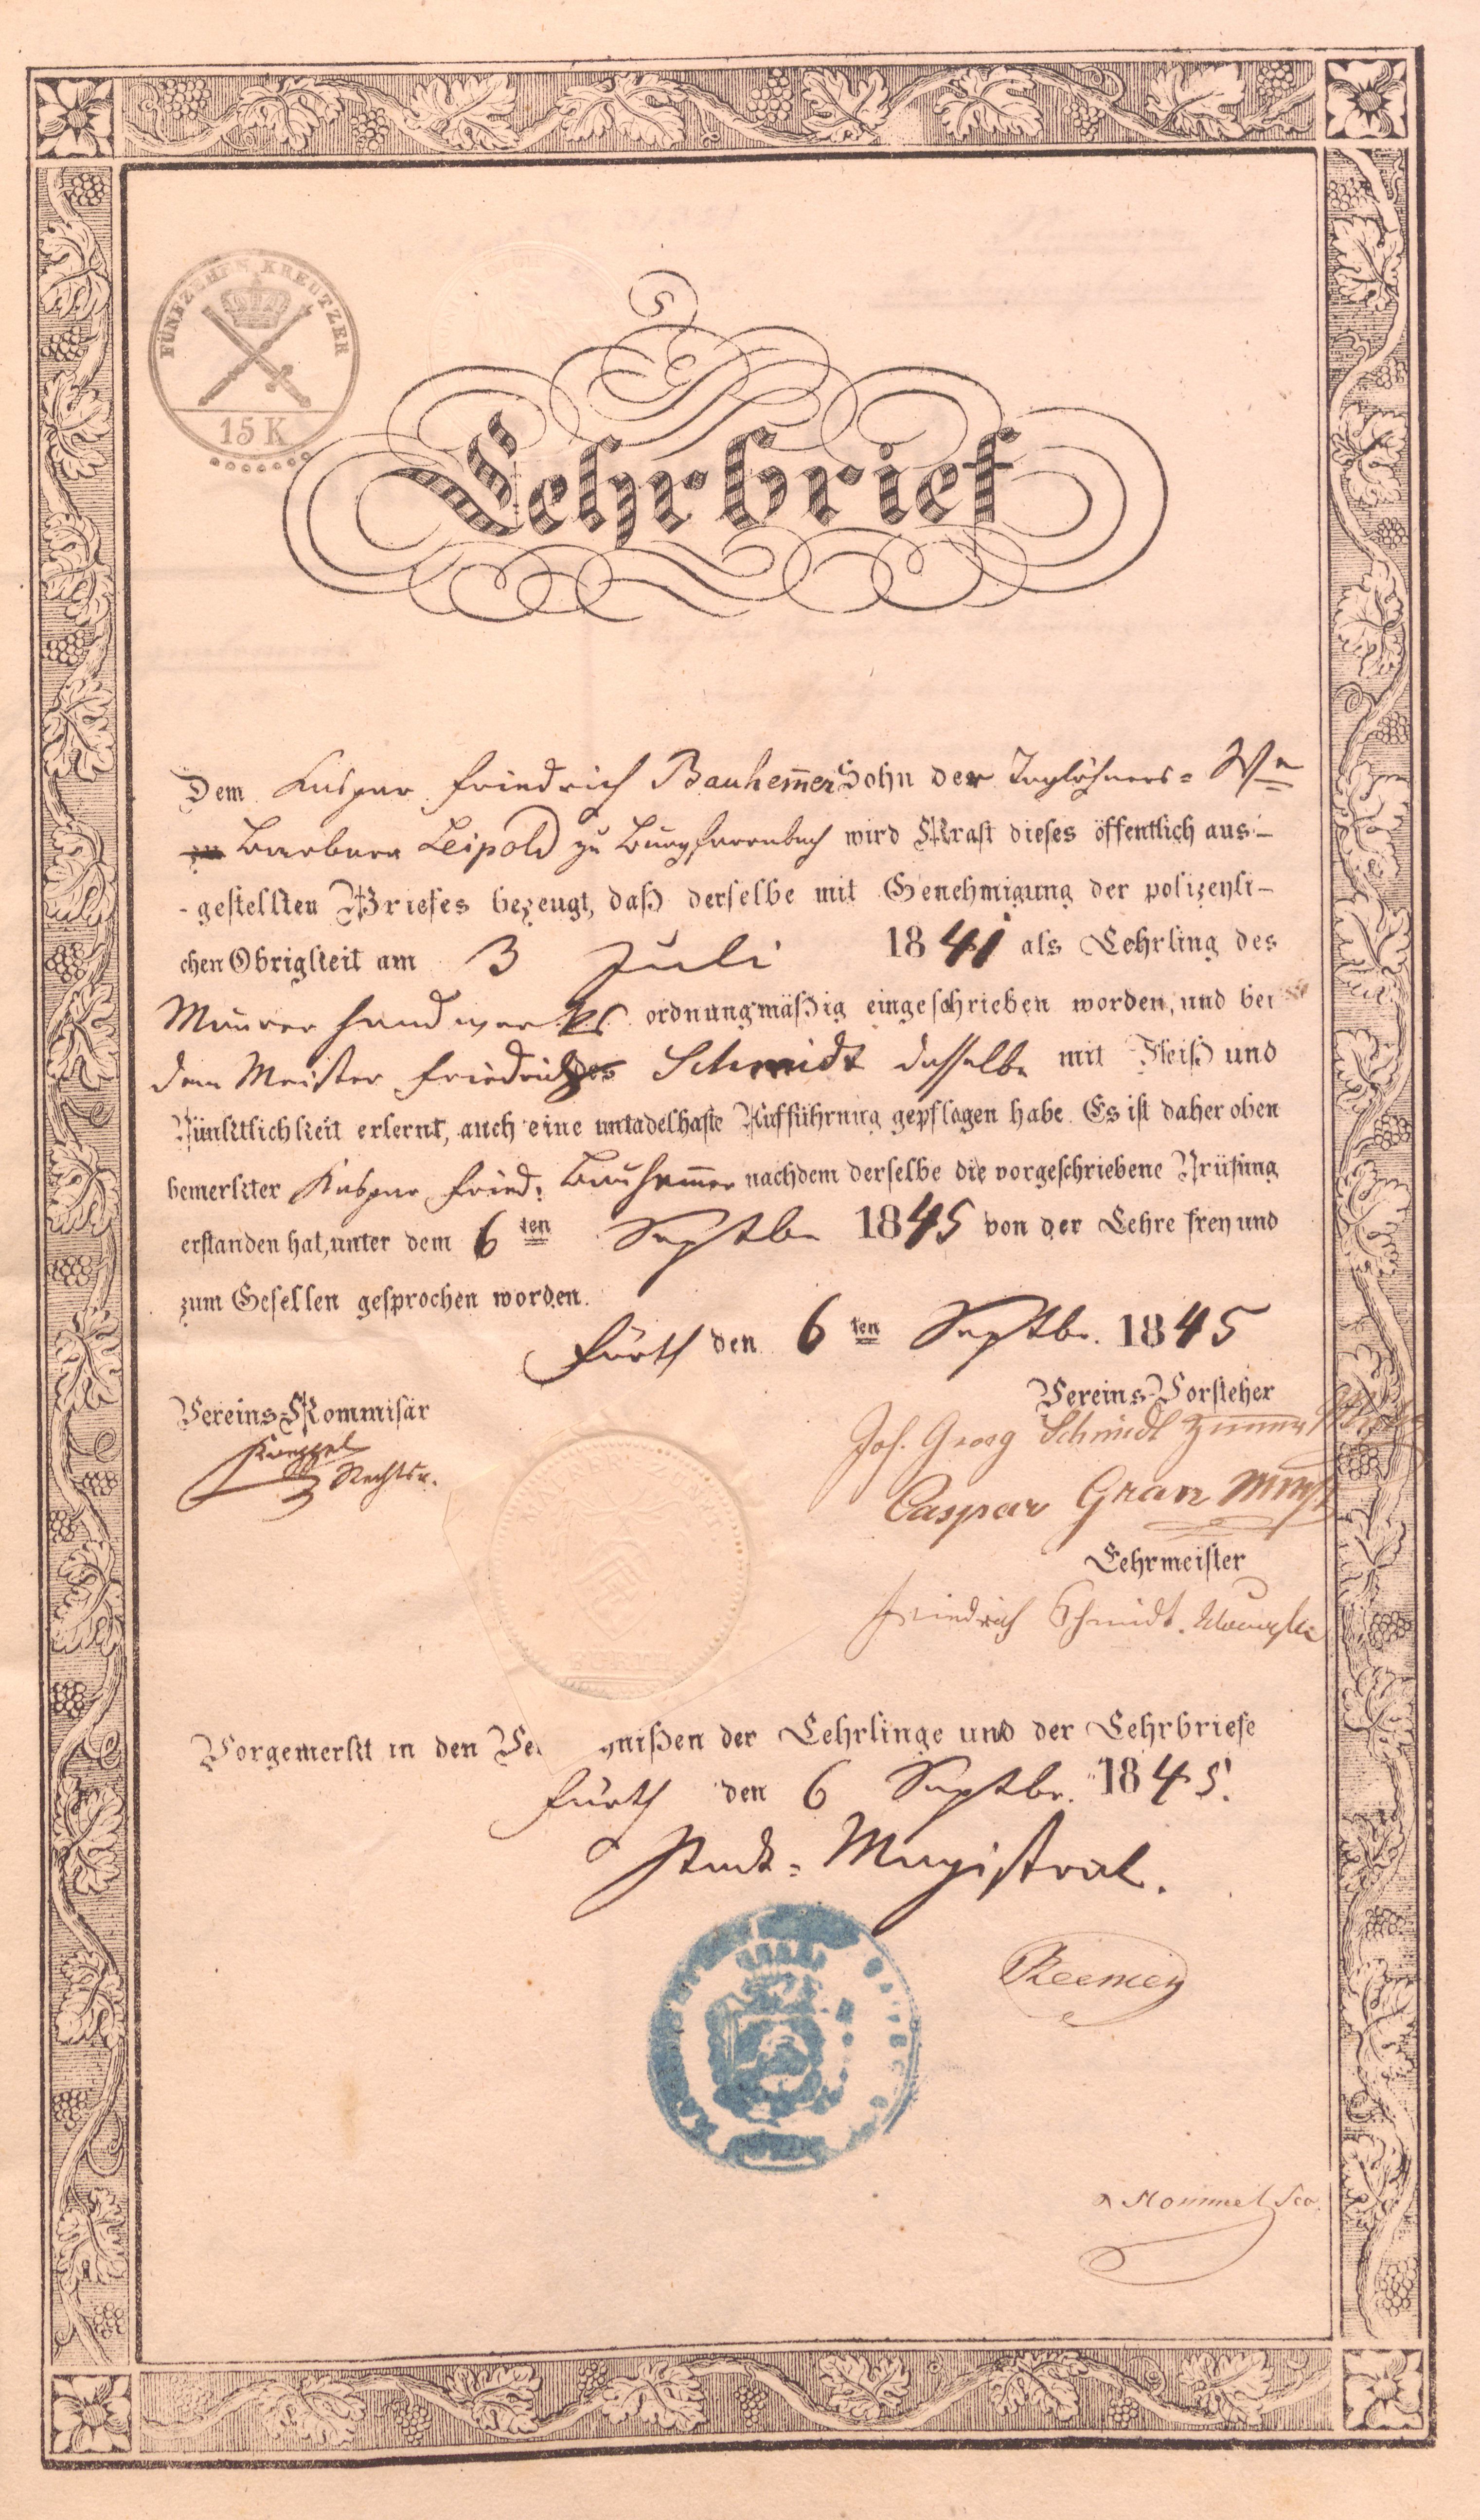 FÜNFZEHN KREUTZER
15 K
Lehrbrief
Dem Kaspar Friedrich Bauhem̄er Sohn der Taglöhners= We
Barbara Leipold zu Burgfarrnbach wird Kraft dieses öffentlich aus-
-gestellten Briefes bezeugt, daß derselbe mit Genehmigung der polizeyli-
chen Obrigkeit am 3 Juli 1841 als Lehrling des
Maurer handwerks ordnungmäßig eingeschrieben worden, und bei
dem Meister Friedrich Schmidt dasselbe mit Fleiß und
Pünktlichkeit erlernt, auch eine untadelhafte Aufführung gepflogen habe. Es ist daher oben
bemerkter Kaspar Fried: Bauhem̄er nachdem derselbe die vorgeschriebene Prüfung
erstanden hat, unter dem 6ten Septbr 1845 von der Lehre frey und
zum Gesellen gesprochen worden.
Fürth den 6ten Septbr. 1845
Vereins-Kommisär
Vereins-Vorsteher
Rechtsr.
Joh. Georg Schmidt
Caspar Gran
Lehrmeister
Friedrich Schmidt.
Vorgemerkt in den Ve gnißen der Lehrlinge und der Lehrbriefe
Fürth den 6 Septbr. 1845.
Stadt= Magistrat.